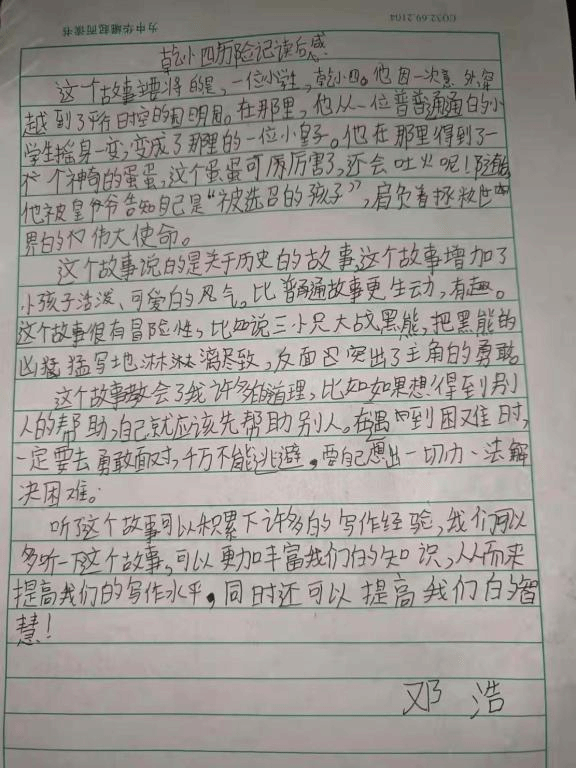 为中华崛起而读书
C032.69.2104
乾小四历险记读后感
这个故事主要将的是,一位小学生,乾小四。他因一次意外穿
越到了平行时空的圆明园。在那里,他从一位普普通通的小
学生摇身一变,变成了那里的一位小皇子。他在那里得到了一
个神奇的蛋蛋,这个蛋蛋可厉厉害了,还会吐火呢!
他被皇爷爷告知自己是“被选召的孩子”,肩负着拯救世
界的伟大使命。
这个故事说的是关于历史的故事,这个故事增加了
小孩子活泼、可爱的风气。比普通故事更生动,有趣。
这个故事很有冒险性,比如说三小只大战黑熊,把黑熊的
凶猛猛写地淋淋漓尽致,反面突出了主角的勇敢。
这个故事教会了我许多的道理,比如如果想得到别
人的帮助,自己就应该先帮助别人。在遇到困难时,
一定要去勇敢面对,千万不能逃避,要自己想出一切办法解
决困难。
听了这个故事可以积累下许多的写作经验,我们可以
多听一下这个故事,可以更加丰富我们的知识,从而来
提高我们的写作水平,同时还可以提高我们的智
慧!
邓浩